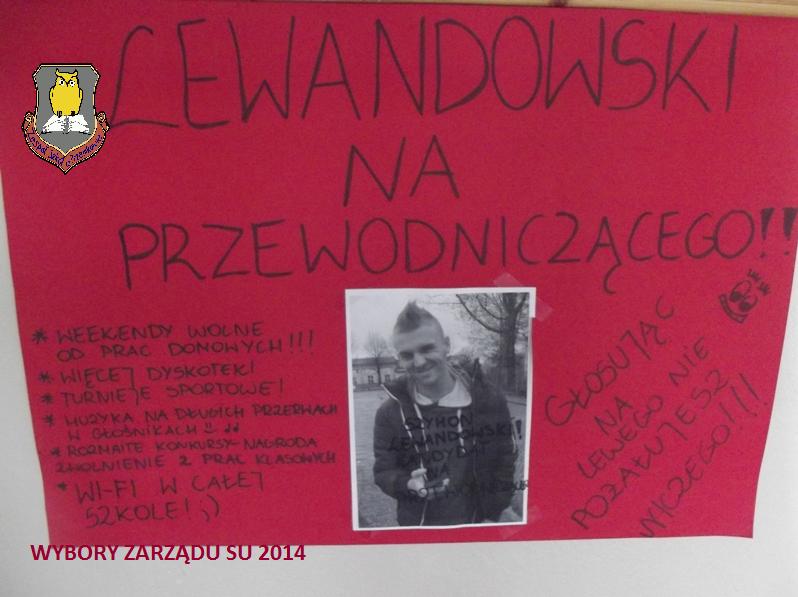 LEWANDOWSKI
NA
PRZEWODNICZĄCEGO!!
* WEEKENDY WOLNE
OD PRAC DOMOWYCH!!!
* WIĘCEJ DYSKOTEK!
* TURNIEJE SPORTOWE!
* MUZYKA NA DŁUGICH PRZERWACH
W GŁOŚNIKACH !!
* ROZMAITE KONKURSY-NAGRODA
ZWOLNIENIE Z PRAC KLASOWYCH
* WI-FI W CAŁEJ
SZKOLE! ;)
SZYMON
LEWANDOWSKI!
KANDYDAT
NA
GŁOSUJĄC
NA
LEWEGO NIE
POŻAŁUJESZ
NICZEGO!!!
WYBORY ZARZĄDU SU 2014